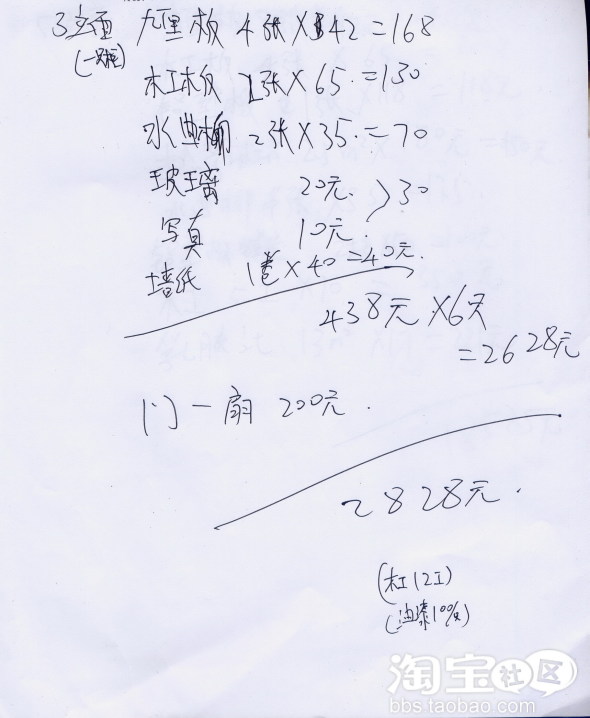 3立面 九厘板 4张×42=168
(一跨)
木工板 2张×65.=130
水曲柳 2张×35.=70
玻璃 20元. >30
写真 10元.
墙纸 1卷×40=40元.
438元×6天
=2628元
门一扇 200元.
2828元.
(木工12工)
(油漆100%)
淘宝社区
bbs.taobao.com